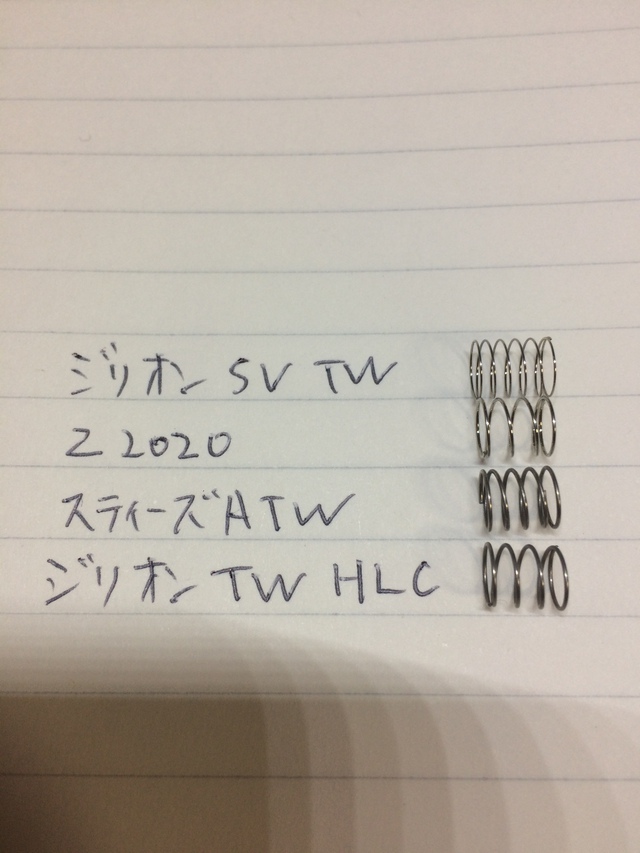 ジリオン SV TW
Z 2020
スティーズA TW
ジリオン TW HLC